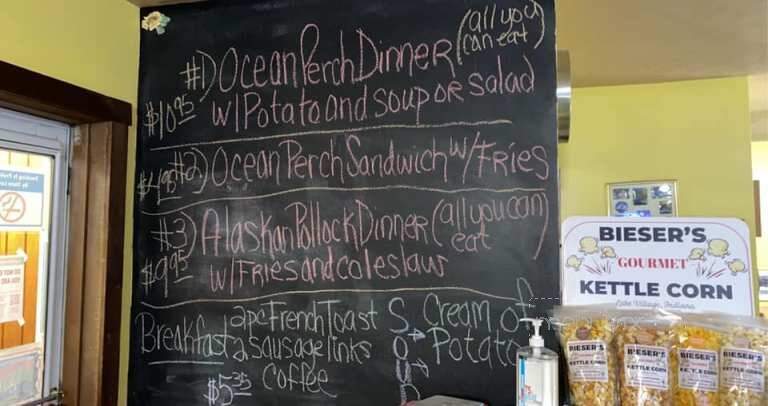 #1) Ocean Perch Dinner (all you can eat)
$10.95 w/ Potato and soup or salad
#2) Ocean Perch Sandwich w/ Fries
#3) Alaskan Pollock Dinner (all you can eat)
$9.95 w/ Fries and coleslaw
Breakfast 2pc French Toast
2 sausage links
coffee
$5.35
SOUP
Cream of
Potato
BIESER'S
GOURMET
KETTLE CORN
Lake Village, Indiana
BIESER'S
KETTLE CORN
BIESER'S
KETTLE CORN
BIESER'S
KETTLE CORN
BIESER'S
KETTLE CORN